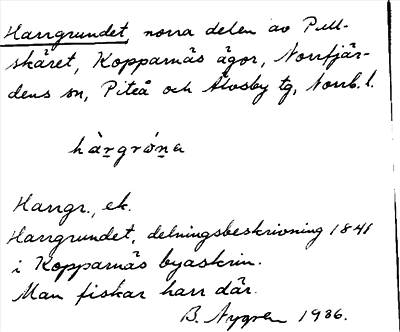 Harrgrundet, norra delen av Pull-
skäret, Kopparnäs ägor, Norrfjär-
dens sn, Piteå och Älvsby tg, Norrb. l.
hàrgrớna
Harrgr., ek.
Harrgrundet, delningsbeskrivning 1841
i Kopparnäs byaskrin.
Man fiskar harr där.
B. Nygren 1936.